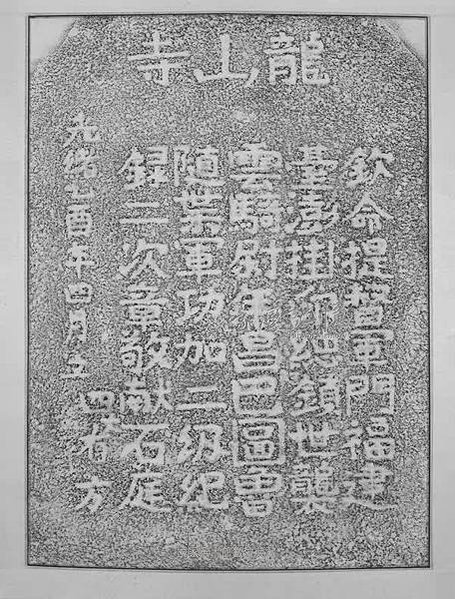 龍山寺
欽命提督軍門福建
臺澎掛印總鎮世襲
雲騎尉年昌巴圖魯
隨帶軍功加二級紀
錄三次章敬献石庭
光緒乙酉年四月立
四省方